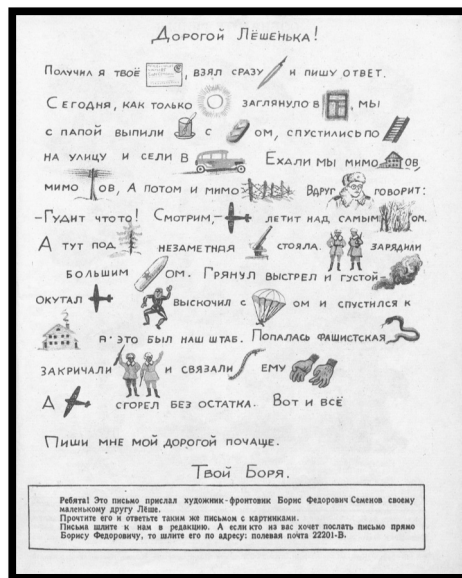 Дорогой Лёшенька!
Получил я твоё , взял сразу и пишу ответ.
Сегодня, как только заглянуло в , мы
с папой выпили с ом, спустились по
на улицу и сели в Ехали мы мимо ов,
мимо ов, а потом и мимо Вдруг говорит:
- Гудит что то! Смотрим, - летит над самым ом.
А тут под незаметная стояла. зарядили
большим ом. Грянул выстрел и густой
окутал выскочил с ом и спустился к
а это был наш штаб. Попалась фашистская
закричали и связали ему
А сгорел без остатка. Вот и всё
Пиши мне мой дорогой почаще.
Твой Боря.
Ребята! Это письмо прислал художник-фронтовик Борис Федорович Семенов своему
маленькому другу Лёше.
Прочтите его и ответьте таким же письмом с картинками.
Письма шлите к нам в редакцию. А если кто из вас хочет послать письмо прямо
Борису Федоровичу, то шлите его по адресу: полевая почта 22201-В.